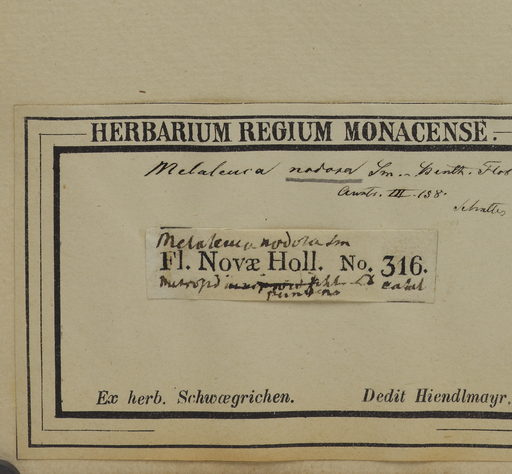 HERBARIUM REGIUM MONACENSE.
Melaleuca nodosa Sm. - Benth. Flor
Austr. III. 138.
Melaleuca nodosa Sm
Fl. Novæ Holl. No. 316.
Ex herb. Schwægrichen. Dedit Hiendlmayr.